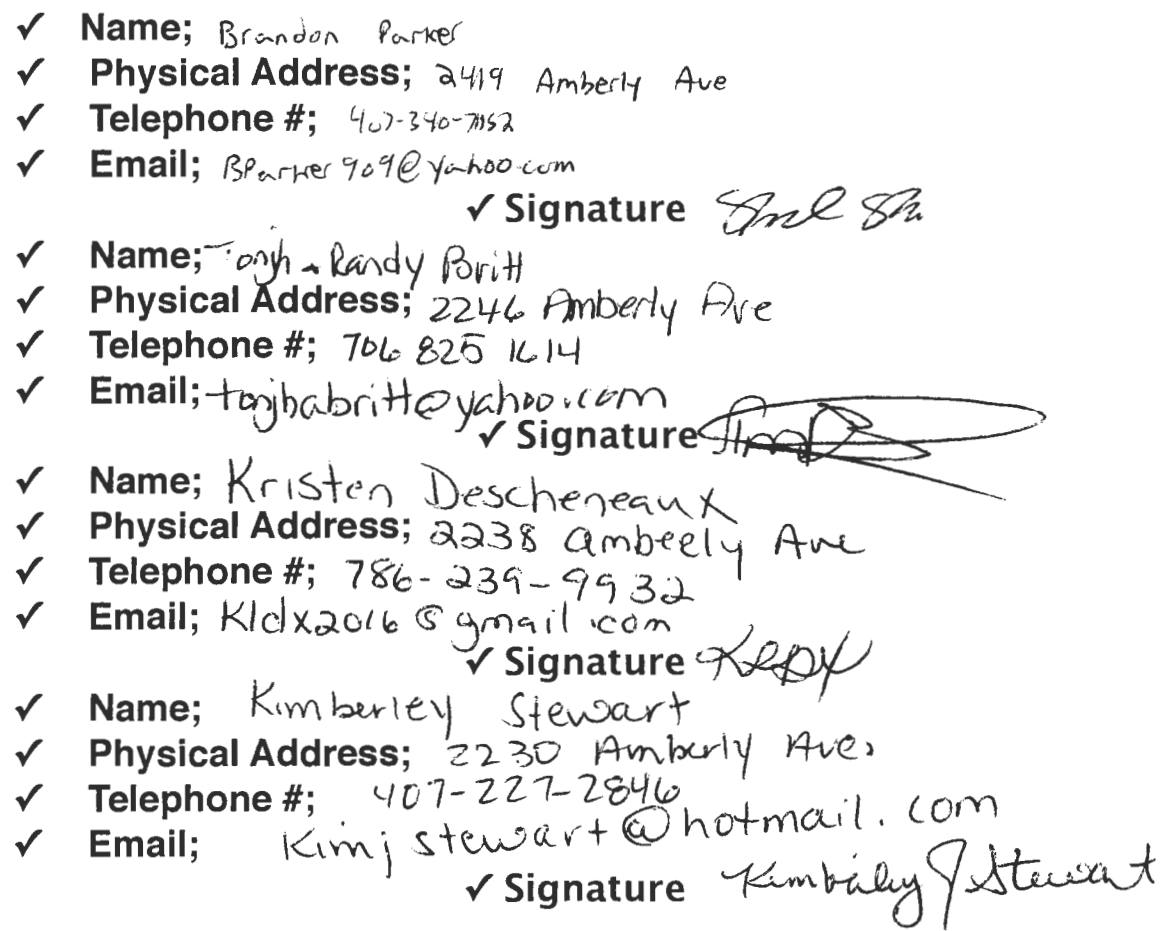 ✓ Name; Brandon Parker
✓ Physical Address; 2419 Amberly Ave
✓ Telephone #; 407-340-7152
✓ Email; BParker909@yahoo.com
✓ Signature
✓ Name; Tonjh Randy Britt
✓ Physical Address; 2246 Amberly Ave
✓ Telephone #; 706 825 1614
✓ Email; tonjhabritt@yahoo.com
✓ Signature
✓ Name; Kristen Descheneaux
✓ Physical Address; 2238 Ambeely Ave
✓ Telephone #; 786-239-9932
✓ Email; Kldx2016@gmail.com
✓ Signature KLDX
✓ Name; Kimberley Stewart
✓ Physical Address; 2230 Amberly Ave.
✓ Telephone #; 407-227-2846
✓ Email; Kimjstewart@hotmail.com
✓ Signature Kimberley J Stewart